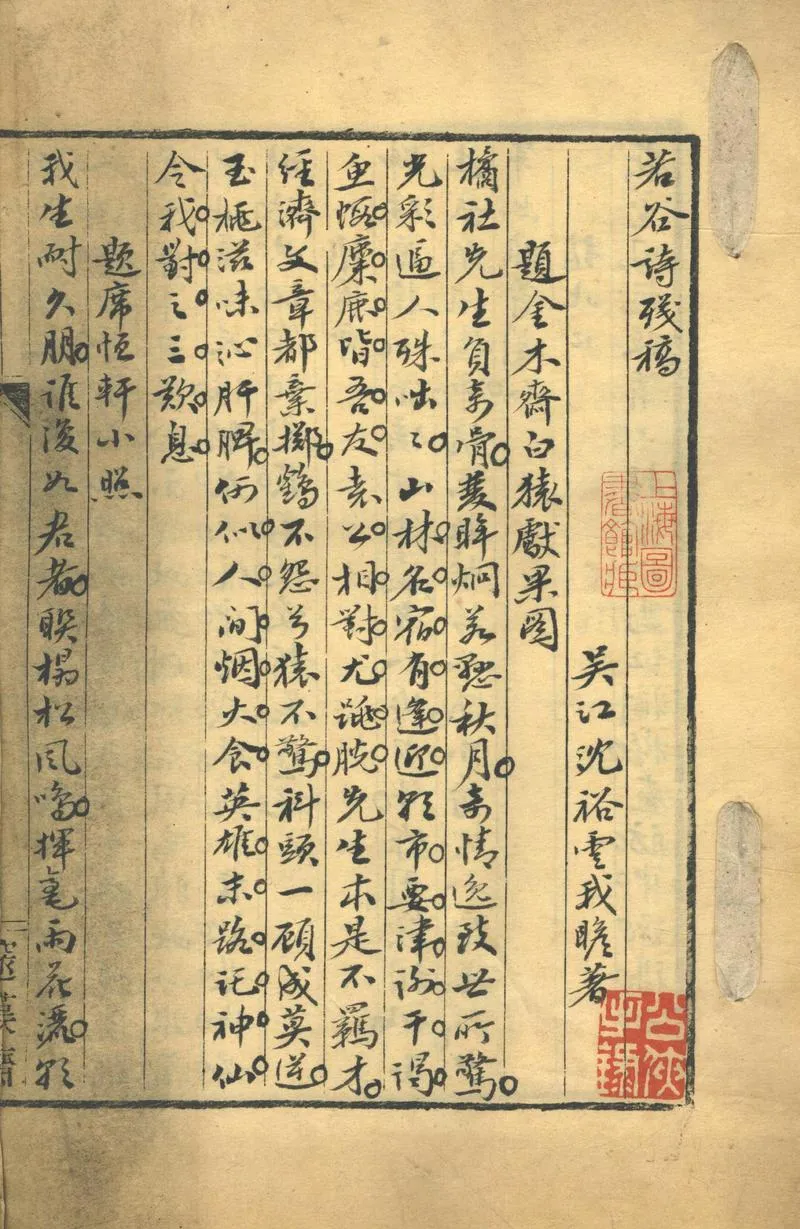 若谷詩殘稿
吳江沈裕雲我瞻著
題金木齋白猿獻果圖
橘社先生負奇骨雙眸炯若懸秋月奇情逸致世所驚
光彩逼人殊咄〻山林名宿有逢迎朝市要津謝干謁
魚蝦麋鹿皆吾友袁公相對尤跳脫先生本是不羈才
經濟文章都棄擲鶴不怨兮猿不驚科頭一顧成莫逆
玉桃滋味沁肝脾何似人間烟火食英雄末路託神仙
令我對之三歎息
題席恒軒小照
我生耐久朋誰復如君者聯榻松風鳴揮毫雨花灑
上海圖書館藏